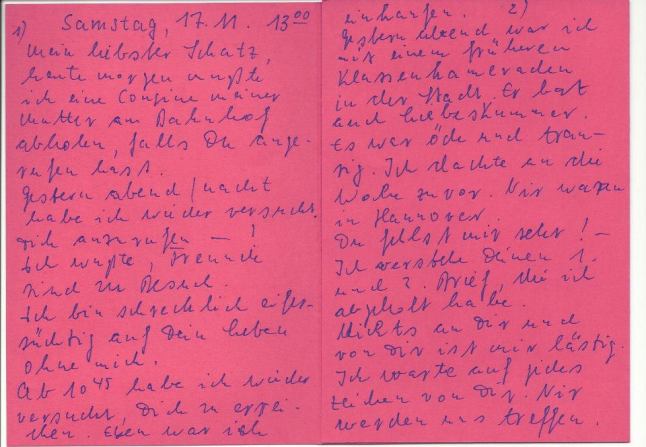 1) Samstag, 17.11. 13⁰⁰
mein liebster Schatz,
heute morgen mußte
ich eine Cousine meiner
Mutter am Bahnhof
abholen, falls Du ange-
rufen hast.
Gestern abend/nacht
habe ich wieder versucht,
Dich anzurufen — !
Ich wußte, Freunde
sind zu Besuch.
Ich bin schrecklich eifer-
süchtig auf Dein Leben
ohne mich.
Ab 10⁴⁵ habe ich wieder
versucht, Dich zu errei-
chen. Eben war ich
einkaufen. 2)
Gestern abend war ich
mit einem früheren
Klassenkameraden
in der Stadt. Er hat
auch Liebeskummer.
Es war öde und trau-
rig. Ich dachte an die
Woche zuvor. Wir waren
in Hannover.
Du fehlst mir sehr! —
Ich verstehe Deinen 1.
und 2. Brief, die ich
abgeholt habe.
Nichts an Dir und
von Dir ist mir lästig.
Ich warte auf jedes
Zeichen von Dir. Wir
werden uns treffen.